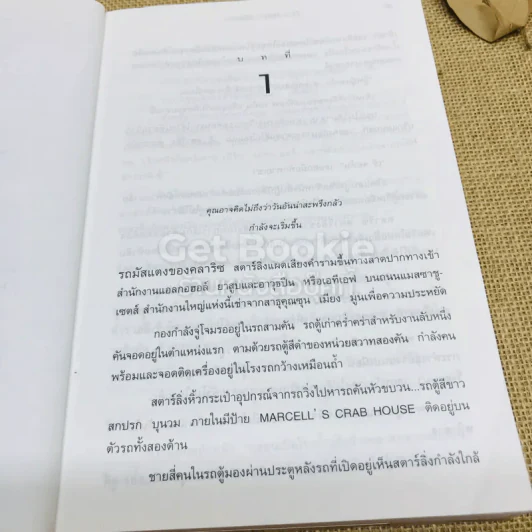 บ ท ที่
1
คุณอาจคิดไม่ถึงว่าวันอันน่าสะพรึงกลัว
กำลังจะเริ่มขึ้น
Get Bookie
รถมัสแตงของคลาริซ สตาร์ลิ่งแผดเสียงคำรามขึ้นทางลาดปากทางเข้า
สำนักงานแอลกอฮอล์ ยาสูบและอาวุธปืน หรือเอทีเอฟ บนถนนแมสซาชู-
เซตส์ สำนักงานใหญ่แห่งนี้เช่าจากสาธุคุณซุน เมียง มูนเพื่อความประหยัด
กองกำลังจู่โจมรออยู่ในรถสามคัน รถตู้เก่าคร่ำคร่าสำหรับงานลับหนึ่ง
คันจอดอยู่ในตำแหน่งแรก ตามด้วยรถตู้สีดำของหน่วยสวาทสองคัน กำลังคน
พร้อมและจอดติดเครื่องอยู่ในโรงรถกว้างเหมือนถ้ำ
สตาร์ลิ่งหิ้วกระเป๋าอุปกรณ์จากรถวิ่งไปหารถคันหัวขบวน...รถตู้สีขาว
สกปรก บุบนวม ภายในมีป้าย MARCELL'S CRAB HOUSE ติดอยู่บน
ตัวรถทั้งสองด้าน
ชายสี่คนในรถตู้มองผ่านประตูหลังรถที่เปิดอยู่เห็นสตาร์ลิ่งกำลังใกล้